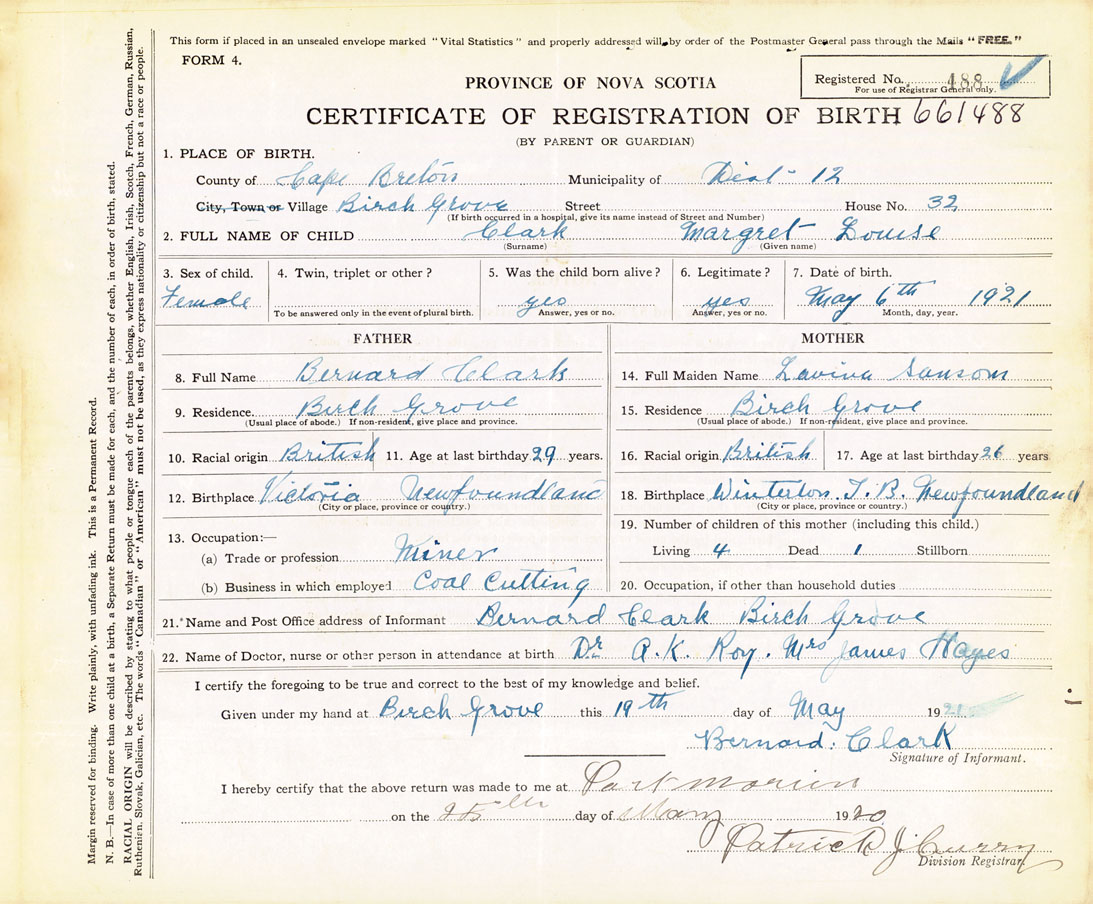 This form if placed in an unsealed envelope marked "Vital Statistics" and properly addressed will by order of the Postmaster General pass through the Mails "FREE."
FORM 4.
Registered No. 488
For use of Registrar General only.
PROVINCE OF NOVA SCOTIA
CERTIFICATE OF REGISTRATION OF BIRTH 661488
(BY PARENT OR GUARDIAN)
1. PLACE OF BIRTH.
County of Cape Breton Municipality of Dist- 12
City, Town or Village Birch Grove Street House No. 32
(If birth occurred in a hospital, give its name instead of Street and Number)
2. FULL NAME OF CHILD Clark Margret Louise
(Surname) (Given name)
3. Sex of child. 4. Twin, triplet or other? 5. Was the child born alive? 6. Legitimate? 7. Date of birth.
Female yes yes May 6th 1921
To be answered only in the event of plural birth. Answer, yes or no. Answer, yes or no. Month, day, year.
FATHER
8. Full Name Bernard Clark
9. Residence. Birch Grove
(Usual place of abode.) If non-resident, give place and province.
10. Racial origin British 11. Age at last birthday 29 years.
12. Birthplace Victoria Newfoundland
(City or place, province or country.)
13. Occupation:—
(a) Trade or profession Miner
(b) Business in which employed Coal Cutting
MOTHER
14. Full Maiden Name Lavina Sansom
15. Residence Birch Grove
(Usual place of abode.) If non-resident, give place and province.
16. Racial origin British 17. Age at last birthday 26 years
18. Birthplace Winterton. T.B. Newfoundland
(City or place, province or country.)
19. Number of children of this mother (including this child.)
Living 4 Dead 1 Stillborn
20. Occupation, if other than household duties
21. Name and Post Office address of Informant Bernard Clark Birch Grove
22. Name of Doctor, nurse or other person in attendance at birth Dr A.K. Roy. Mrs James Hayes
I certify the foregoing to be true and correct to the best of my knowledge and belief.
Given under my hand at Birch Grove this 19th day of May 1921
Bernard. Clark
Signature of Informant.
I hereby certify that the above return was made to me at Port Morien
on the 25th day of May 1920
Patrick J Curry
Division Registrar.
Margin reserved for binding. Write plainly, with unfading ink. This is a Permanent Record.
N. B.—In case of more than one child at a birth, a Separate Return must be made for each, and the number of each, in order of birth, stated.
RACIAL ORIGIN will be described by stating to what people or tongue each of the parents belongs, whether English, Irish, Scotch, French, German, Russian,
Ruthenien, Slovak, Galician, etc. The words "Canadian" or "American" must not be used, as they express nationality or citizenship but not a race or people.